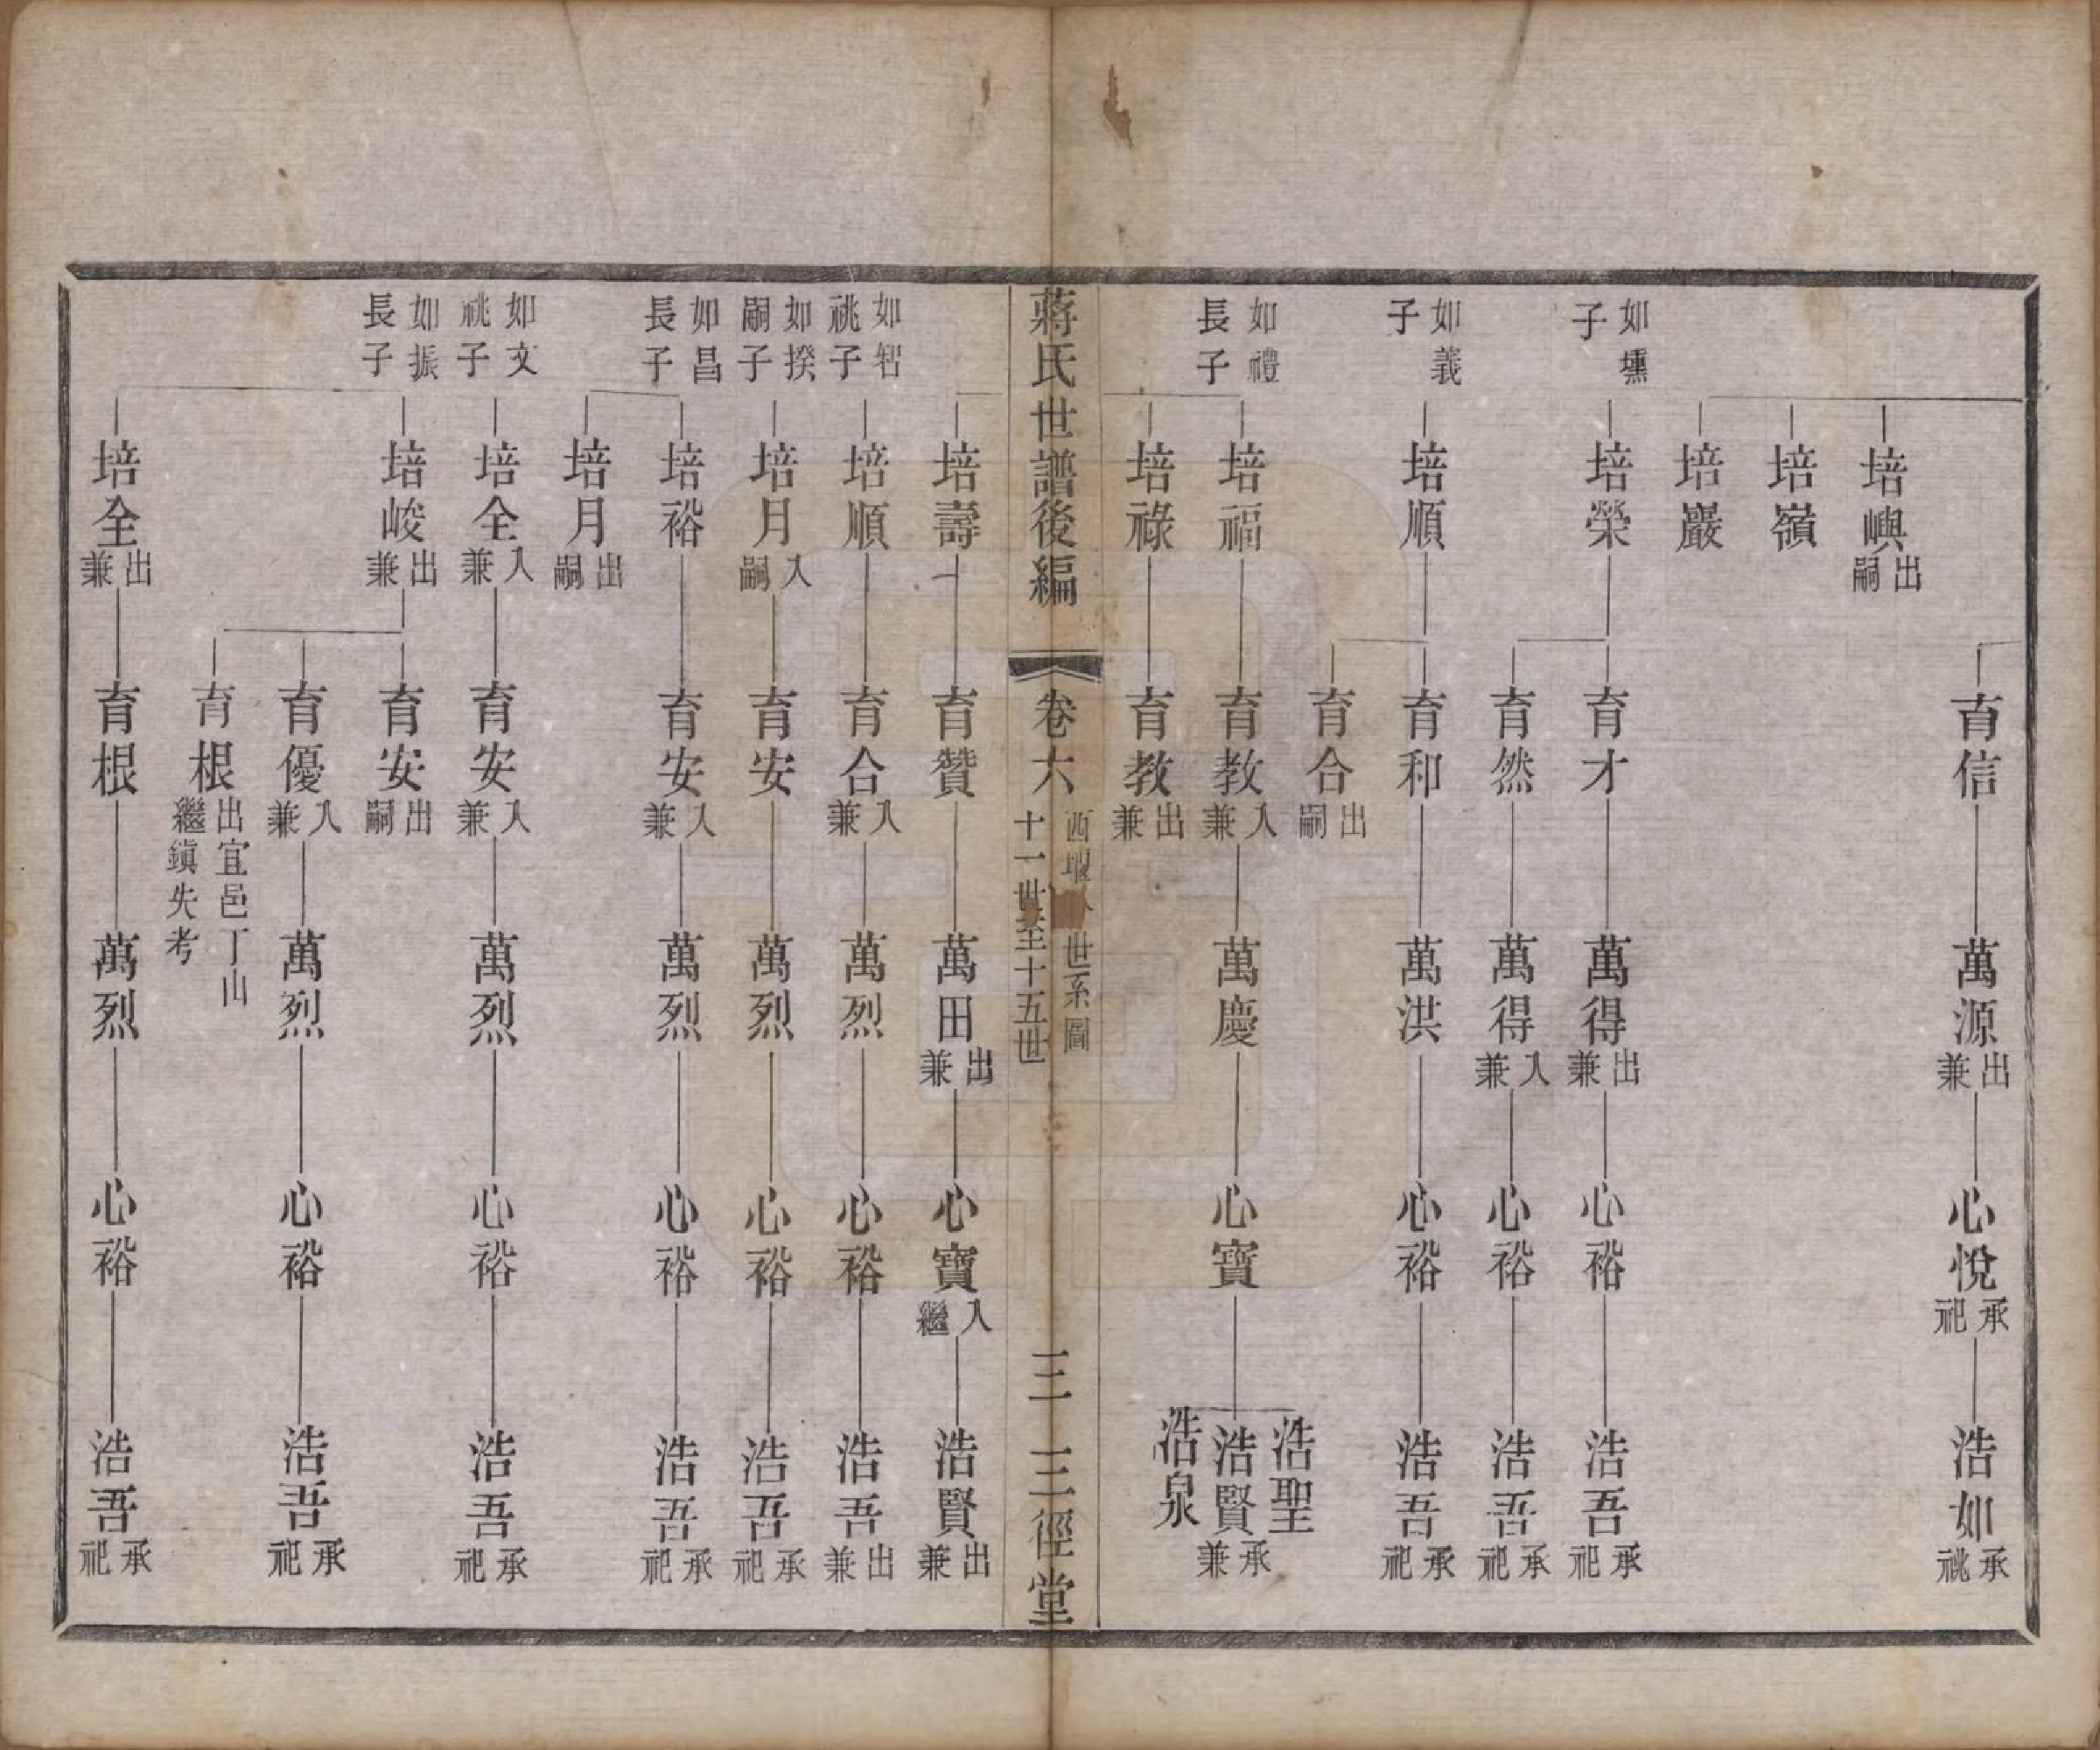 育信 萬源出兼 心悅承祀 浩如承祧
培嶼出嗣
培嶺
培巖
如壎子 培榮 育才 萬得出兼 心裕 浩吾承祀
育然 萬得入兼 心裕 浩吾承祀
如義子 培順 育和 萬洪 心裕 浩吾承祀
育合出嗣
如禮長子 培福 育教入兼 萬慶 心寶 浩聖
浩賢承兼
浩泉
培祿 育教出兼
蔣氏世譜後編 卷六 西堰 世系圖 十一世至十五世 三 三徑堂
培壽 育贊 萬田出兼 心寶入繼 浩賢出兼
如智祧子 培順 育合入兼 萬烈 心裕 浩吾出兼
如揆嗣子 培月入嗣 育安 萬烈 心裕 浩吾承祀
如昌長子 培裕 育安入兼 萬烈 心裕 浩吾承祀
培月出嗣
如文祧子 培全入兼 育安入兼 萬烈 心裕 浩吾承祀
如振長子 培峻出兼 育安出嗣
育優入兼 萬烈 心裕 浩吾承祀
育根出宜邑丁山繼鎮失考
培全出兼 育根 萬烈 心裕 浩吾承祀